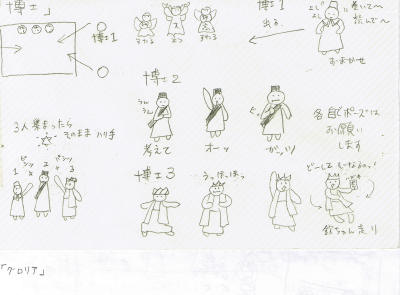 「博士」
博士1
すたる
えっ
すたる
博士1
出る
よし
よし
巻いて〜
読んで〜
おまかせ
博士2
うんうん
考えて
オーッ
ピッ
ガッツ
各自でポーズは
お願い
します
3人集まったら
そのまま ハリ手
1
2
3
博士3
うっほっほっ
欽ちゃん走り
「グロリア」